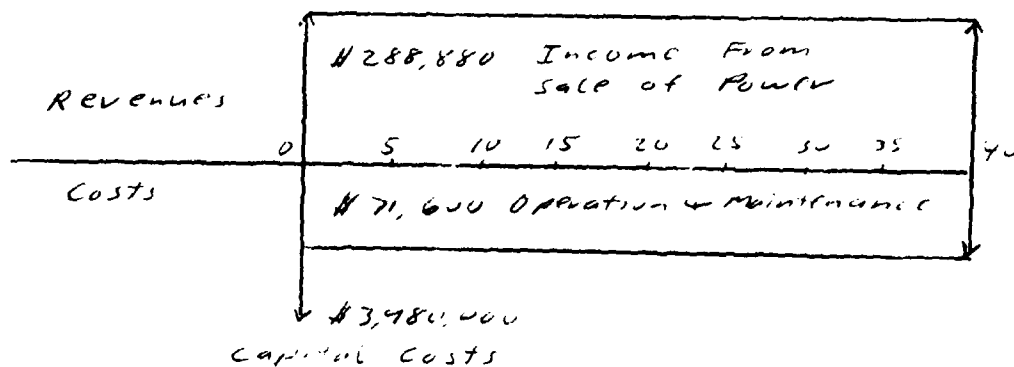 $288,880 Income From
Sale of Power
Revenues
0 5 10 15 20 25 30 35 40
Costs
$71,600 Operation & Maintenance
$3,480,000
Capital Costs